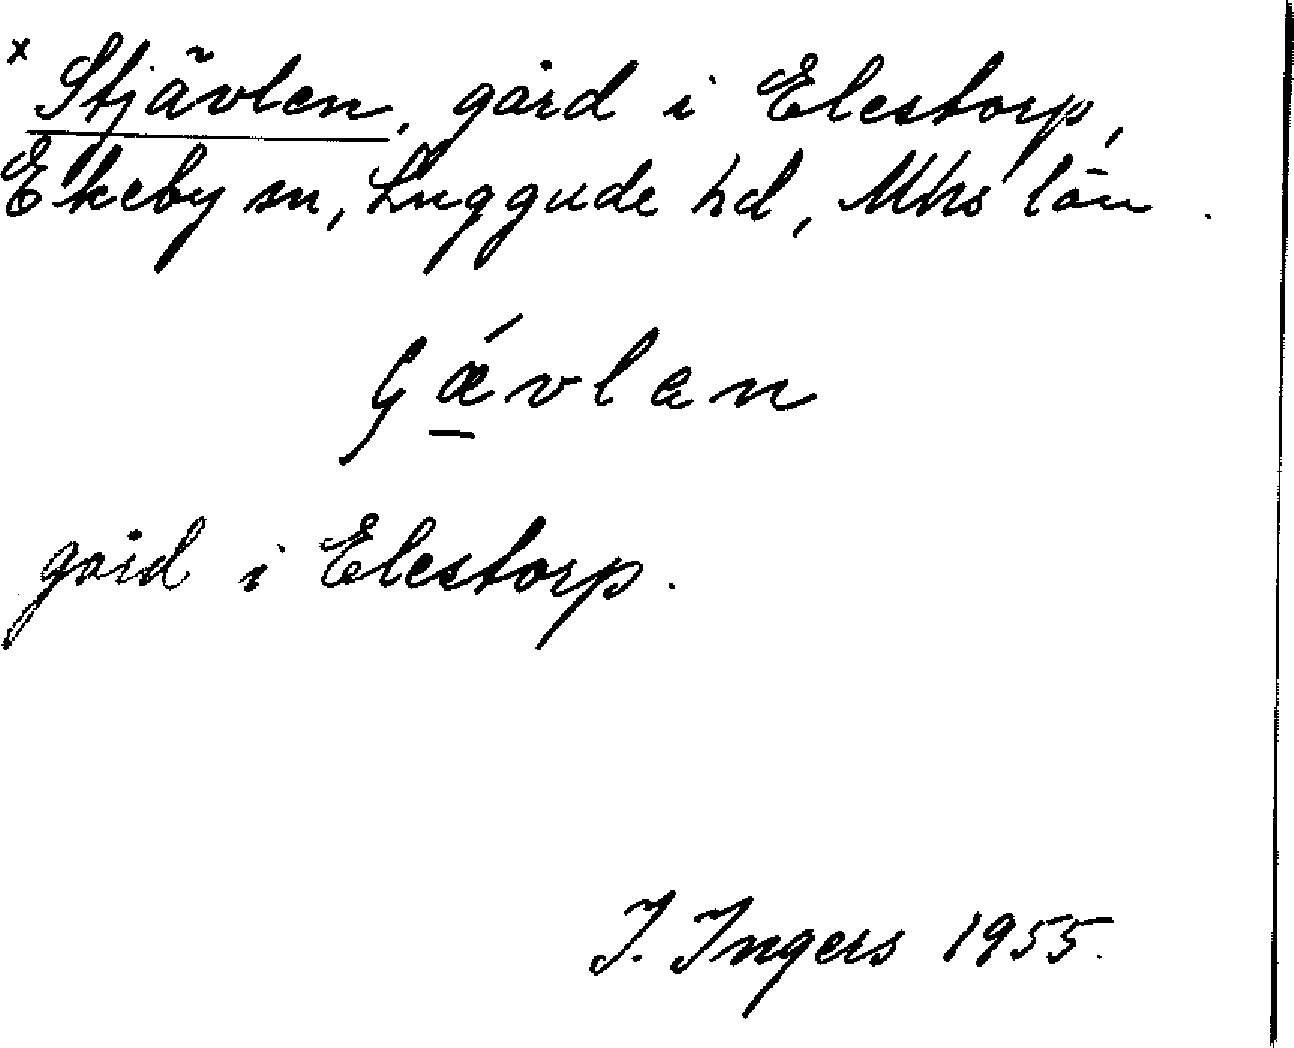 x Stjävlen, gård i Elestorp,
Ekeby sn, Luggude hd, Mhs län.
ʃǽvlan
gård i Elestorp.
I. Ingers 1955.